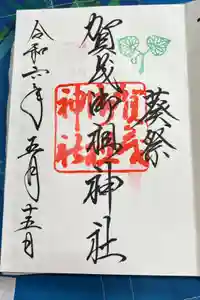 葵祭
賀茂御祖神社
賀茂御祖神社
令和六年五月十五日